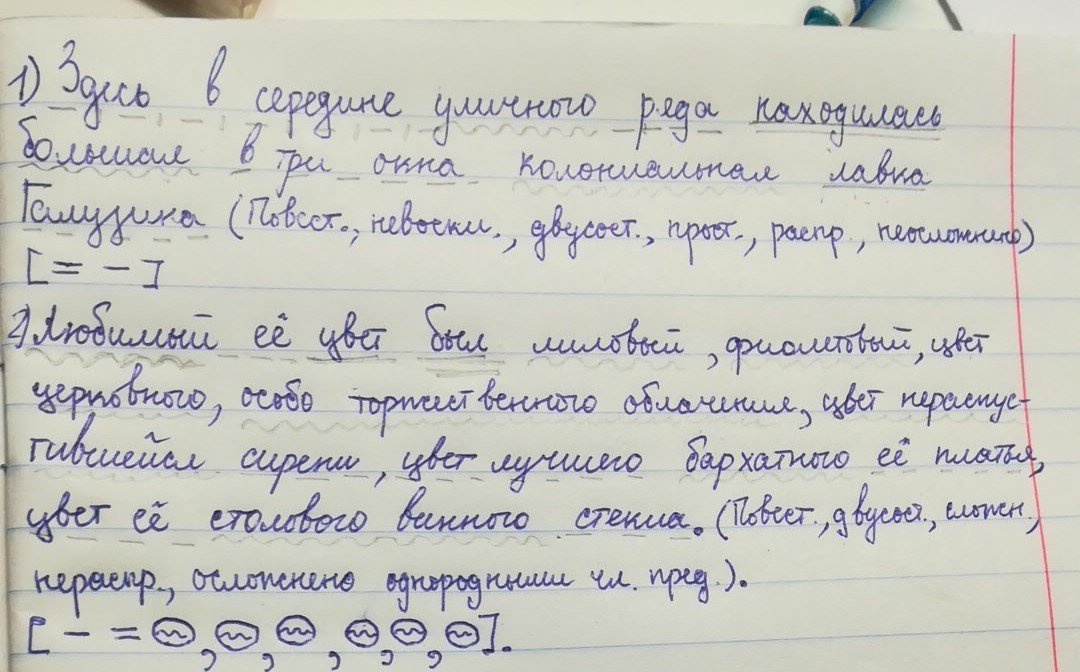 1) Здесь в середине уличного ряда находилась
большая в три окна колониальная лавка
Галузина (Повест., невоскл., двусост., прост., распр., неосложнено)
[= -]
2) Любимый её цвет был лиловый, фиолетовый, цвет
церковного, особо торжественного облачения, цвет нераспус-
тившейся сирени, цвет лучшего бархатного её платья,
цвет её столового винного стекла. (Повест., двусост., сложн.,
нераспр., осложнено однородными чл. пред.).
[ - = , , , , , ].